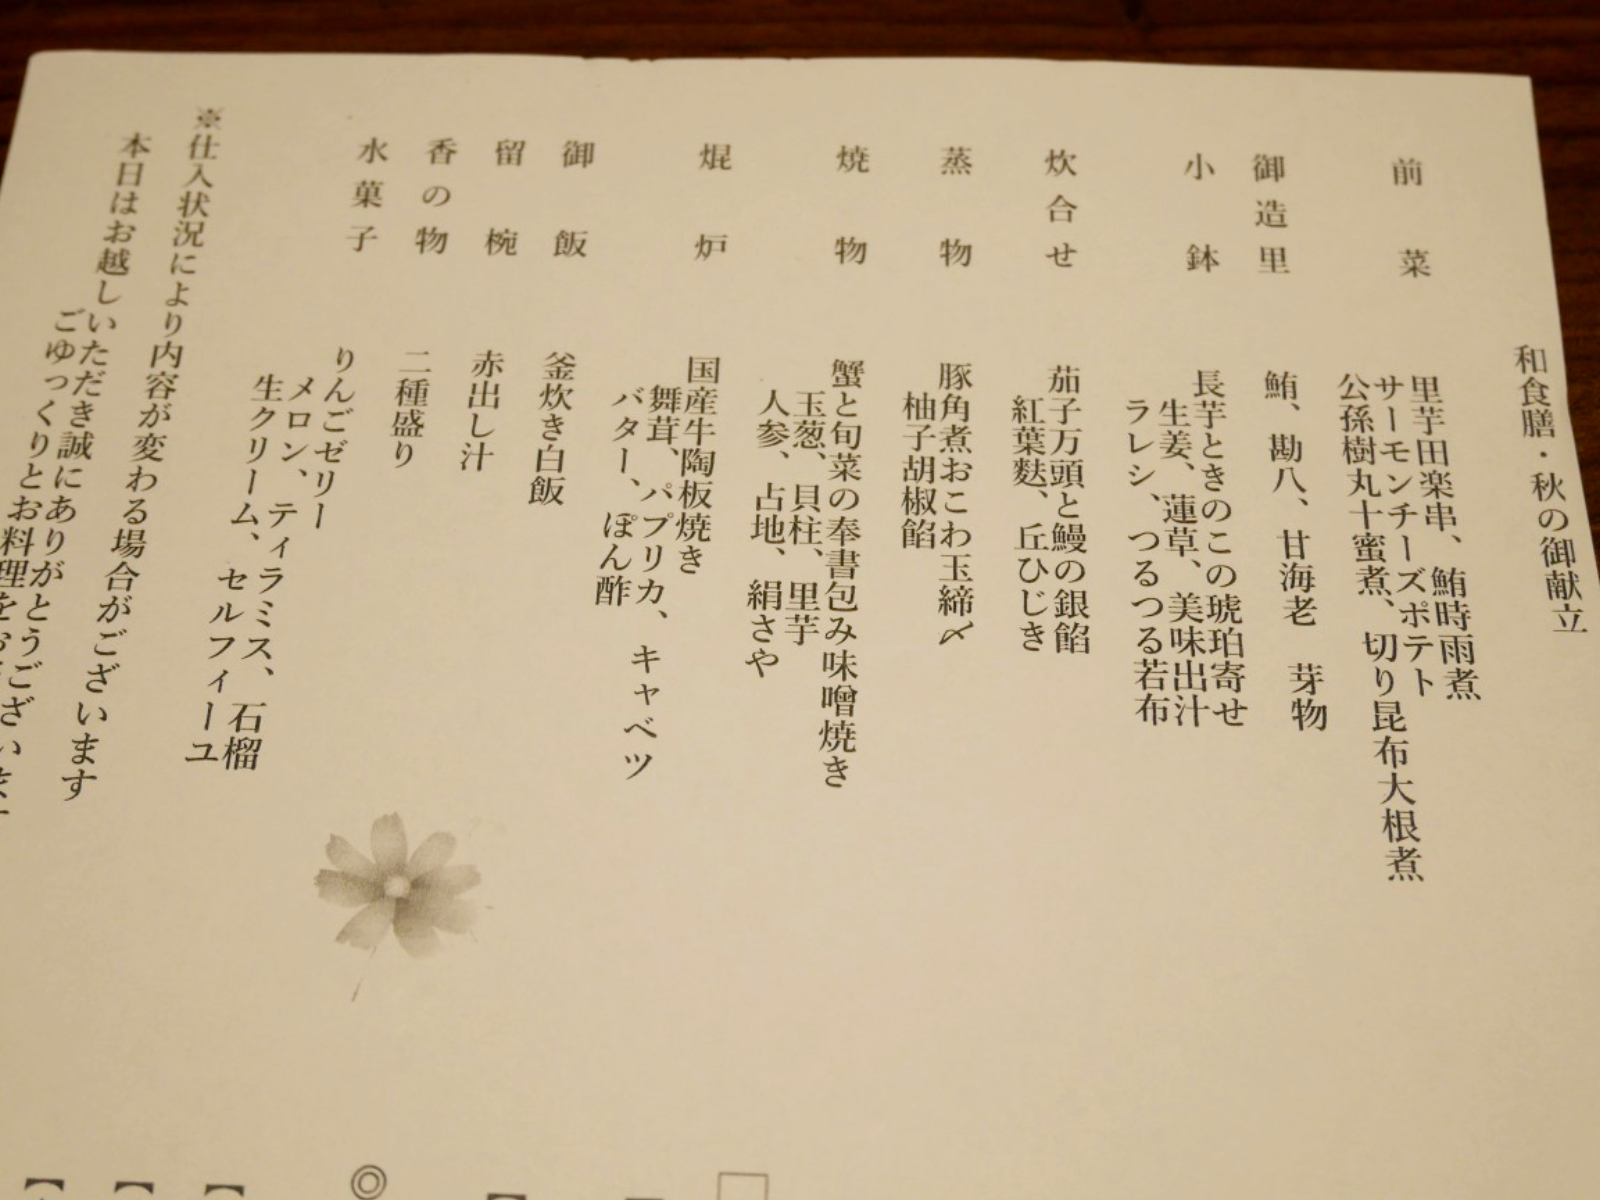 和食膳・秋の御献立
前菜
里芋田楽串、鮪時雨煮
サーモンチーズポテト
公孫樹丸十蜜煮、切り昆布大根煮
御造里
鮪、勘八、甘海老 芽物
小鉢
長芋ときのこの琥珀寄せ
生姜、蓮草、美味出汁
ラレシ、つるつる若布
炊合せ
茄子万頭と鰻の銀餡
紅葉麩、丘ひじき
蒸物
豚角煮おこわ玉締〆
柚子胡椒餡
焼物
蟹と旬菜の奉書包み味噌焼き
玉葱、貝柱、里芋
人参、占地、絹さや
焜炉
国産牛陶板焼き
舞茸、パプリカ、キャベツ
バター、ぽん酢
御飯
釜炊き白飯
留椀
赤出し汁
香の物
二種盛り
水菓子
りんごゼリー
メロン、ティラミス、石榴
生クリーム、セルフィーユ
※仕入状況により内容が変わる場合がございます
本日はお越しいただき誠にありがとうございます
ごゆっくりとお料理をお